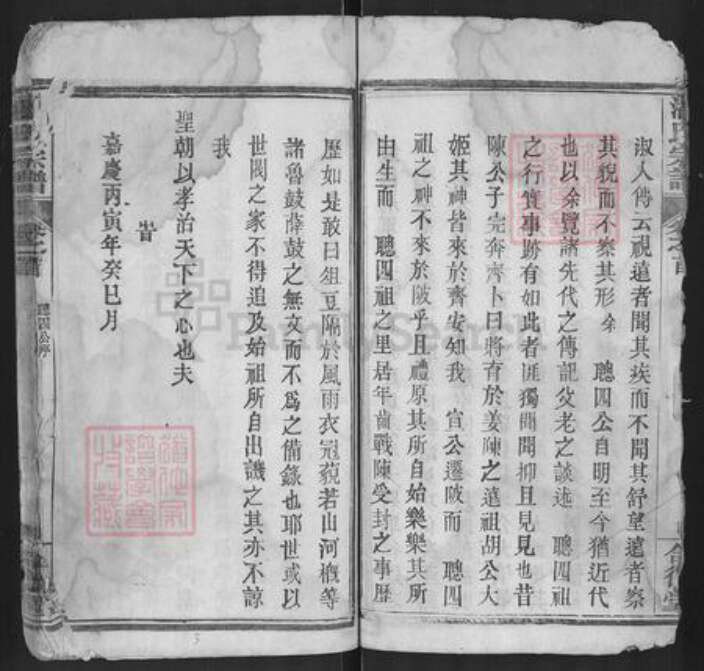 淑人傳云視遠者聞其疾而不聞其舒望遠者察
其貌而不察其形余 聰四公自明至今猶近代
也以余覽諸先代之傳記父老之談述 聰四祖
之行實事跡有如此者匪獨耳聞抑且見見也昔
陳公子完奔齊卜曰將育於姜陳之遠祖胡公大
姬其神皆來於齊安知我 宣公遷陂而 聰四
祖之神不來於陂乎且禮原其所自始樂樂其所
由生而 聰四祖之里居年齒戰陳受封之事歷
歷如是敢曰俎豆隔於風雨衣冠藐若山河概等
諸魯鼓薛鼓之無文而不爲之備錄也耶世或以
世閥之家不得追及始祖所自出譏之其亦不諒
我
聖朝以孝治天下之心也夫
旹
嘉慶丙寅年癸巳月
宗譜
卷之首
聰四公序
氏宗譜
卷之首
FamilySearch